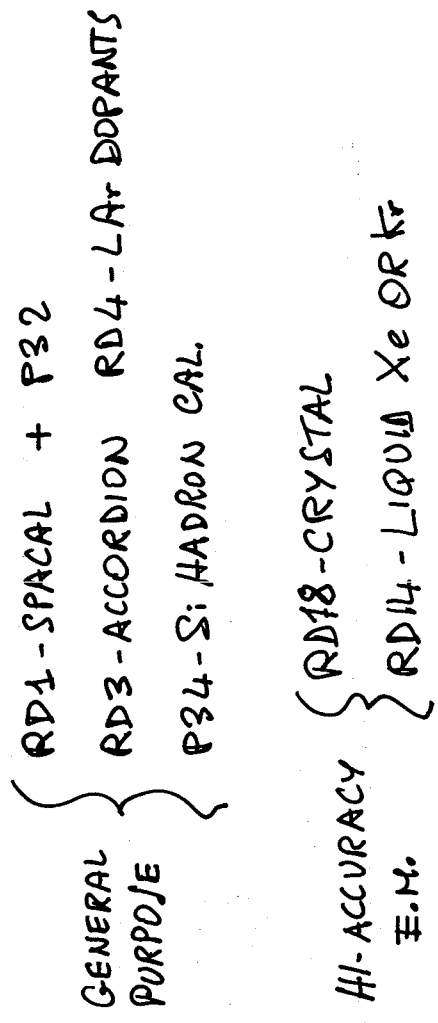 GENERAL PURPOSE
RD1-SPACAL + P32
RD3-ACCORDION RD4-LAr DOPANTS
P34-Si HADRON CAL.
HI-ACCURACY E.M.
RD18-CRYSTAL
RD14-LIQUID Xe OR Kr